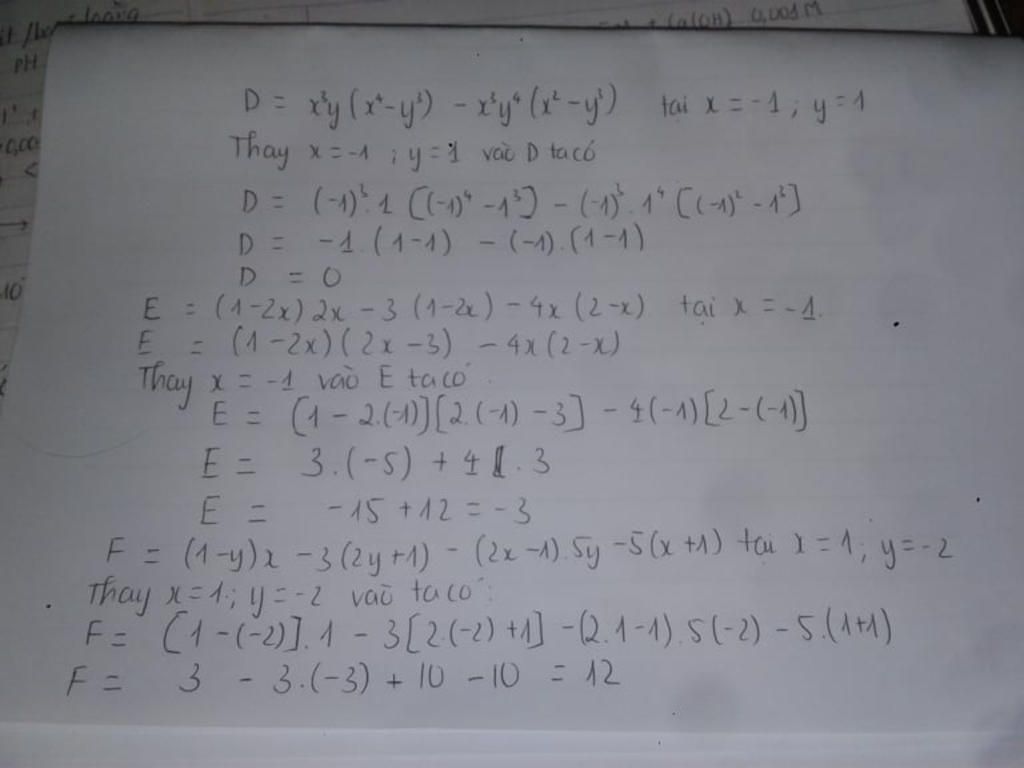 + Ca(OH)₂ 0,001M
pH
D = x³y (x⁴ - y³) - x³y⁴ (x² - y³) tại x = -1 ; y = 1
Thay x = -1 ; y = 1 vào D ta có
D = (-1)³.1 [(-1)⁴ - 1³] - (-1)³.1⁴ [(-1)² - 1³]
D = -1.(1-1) - (-1).(1-1)
D = 0
E = (1-2x)2x - 3(1-2x) - 4x(2-x) tại x = -1.
E = (1-2x)(2x-3) - 4x(2-x)
Thay x = -1 vào E ta có
E = [1 - 2.(-1)][2.(-1) - 3] - 4(-1)[2-(-1)]
E = 3.(-5) + 4.3
E = -15 + 12 = -3
F = (1-y)x - 3(2y+1) - (2x-1).5y - 5(x+1) tại x = 1 ; y = -2
Thay x = 1 ; y = -2 vào ta có :
F = [1-(-2)].1 - 3[2.(-2)+1] - (2.1-1).5(-2) - 5.(1+1)
F = 3 - 3.(-3) + 10 - 10 = 12